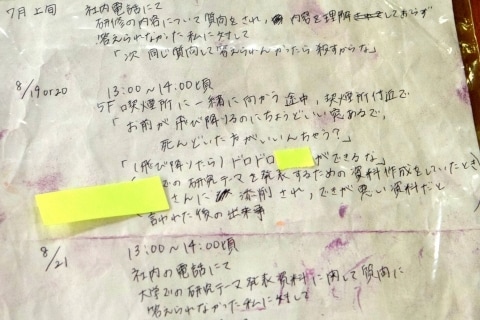 7月上旬 社内電話にて
研修の内容について質問をされ、内容を理解しておらず
答えられなかった私に対して
「次 同じ質問して答えられんかったら殺すからな」
8/19or20 13:00~14:00頃
5F喫煙所に一緒に向かう途中、喫煙所付近で
「お前が飛び降りるのにちょうどいい窓あるで、
死んどいた方がいいんちゃう?」
「(飛び降りたら)ドロドロ ができるな」
での研究テーマを発表するための資料作成をしていたとき
さんに 添削され、できが悪い資料だと
言われた後の出来事
8/21 13:00~14:00頃
社内の電話にて
大学での研究テーマ発表資料に関して質問に
答えられなかった私に対して